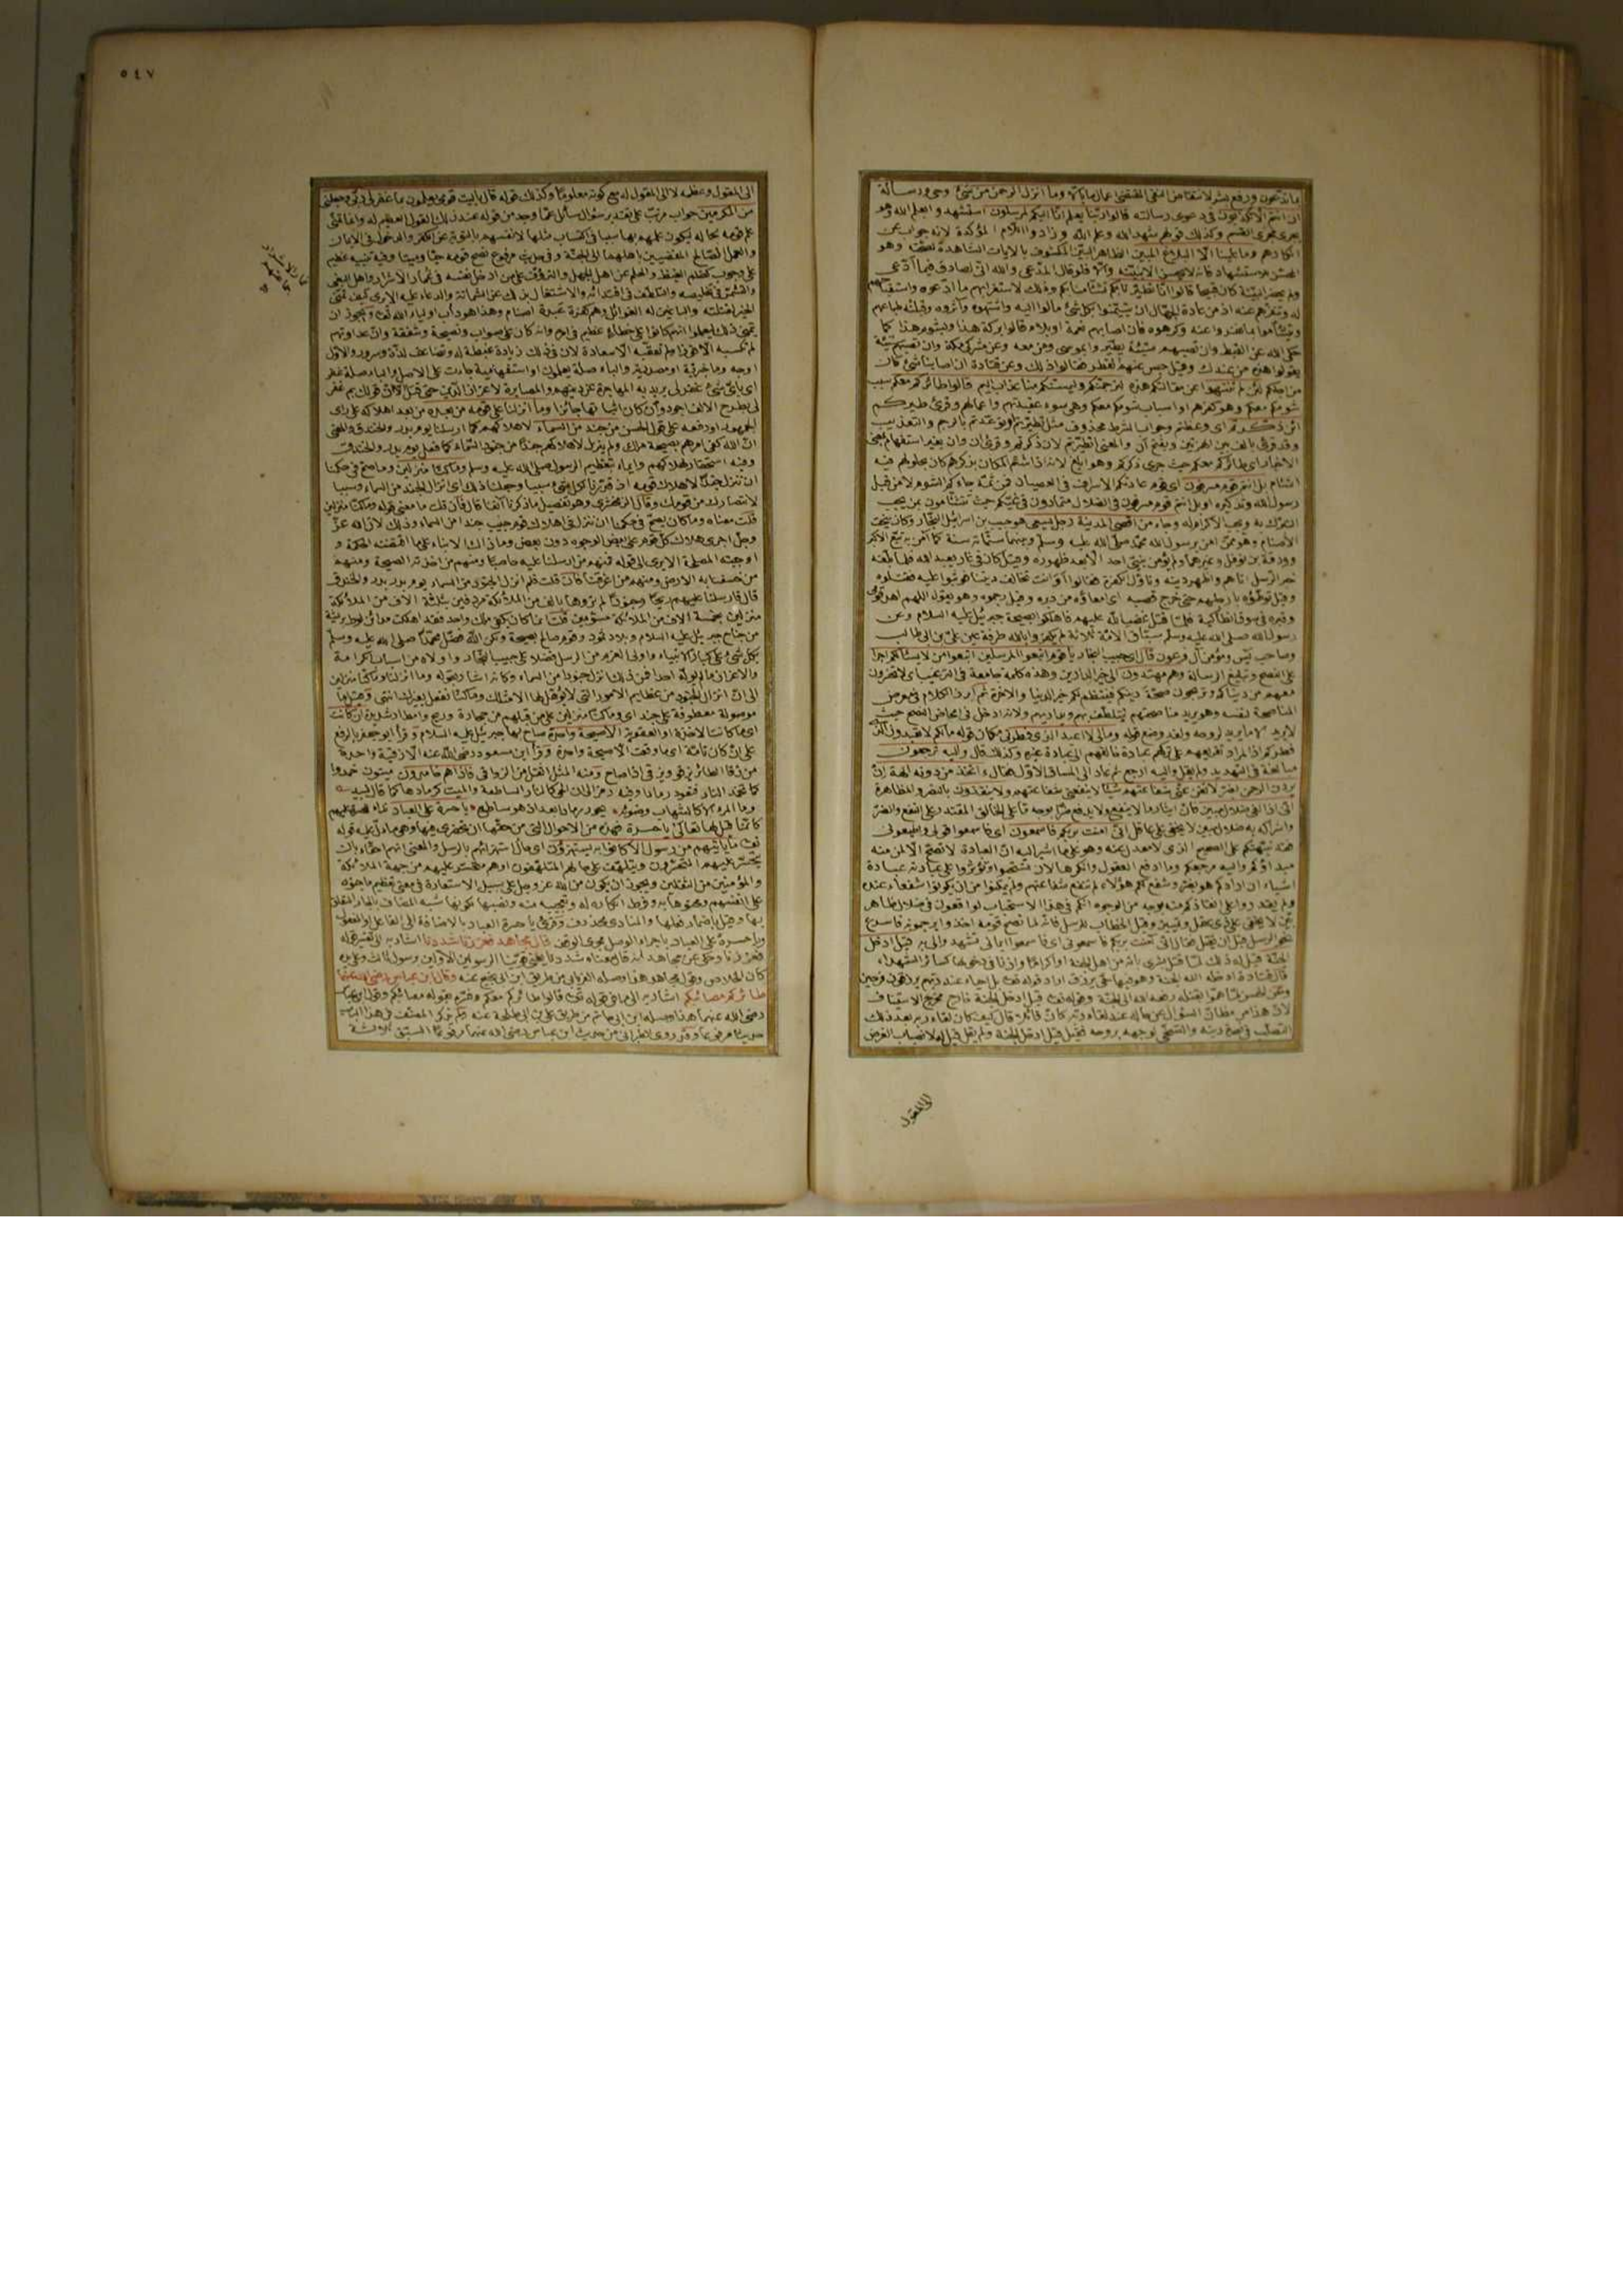 ما تدعون ورفع بشر لانتقاض النفي المقتضي اعمال ما بالا وما انزل الرحمن من شئ وحى ورسالة
ان انتم الا تكذبون في دعوى رسالته قالوا ربنا يعلم انا اليكم لمرسلون استشهدوا بعلم الله وهو
يجرى مجرى القسم وكذلك قولهم شهد الله وعلم الله وزادوا اللام المؤكدة لانه جواب عن
انكارهم وما علينا الا البلاغ المبين الظاهر البين المكشوف بالايات الشاهدة لصحته وهو
المحسن للاستشهاد فانه لا يحسن الا ببينة والا فلو قال المدعى والله انى لصادق فيما ادعى
ولم يحضر البينة كان قبيحا قالوا انا تطيرنا بكم تشاءمنا بكم وذلك لاستغرابهم ما ادعوه واستقباحهم
له وتنفرهم عنه اذ من عادة الجهال ان يتيمنوا بكل شئ مالوا اليه واشتهوه وآثروه وقبلته طباعهم
ويتشاءموا بما نفروا عنه وكرهوه فان اصابهم نعمة او بلاء قالوا ببركة هذا وبشؤم هذا كما
حكى الله عن القبط وان تصبهم سيئة يطيروا بموسى ومن معه وعن مشركى مكة وان تصبهم سيئة
يقولوا هذه من عندك وقيل حبس عنهم القطر فقالوا ذلك وعن قتادة ان اصابنا شئ كان
من اجلكم لئن لم تنتهوا عن مقالتكم هذه لنرجمنكم وليمسنكم منا عذاب اليم قالوا طائركم معكم سبب
شومكم معكم وهو كفرهم او اسباب شومكم معكم وهى سوء عقيدتهم واعمالهم وقرئ طيركم
ائن ذكرتم اى وعظتم وجواب الشرط محذوف مثل تطيرتم او توعدتم بالرجم والتعذيب
وقد قرئ بالف بين الهمزتين وبفتح ان والمعنى اتطيرتم لان ذكرتم وقرئ ان وان بغير استفهام بمعنى
الاخبار اى طائركم معكم حيث جرى ذكركم وهو ابلغ لانه اذا شئم المكان بذكرهم كان بحلولهم فيه
اشئام بل انتم قوم مسرفون اى قوم عادتكم الاسراف فى العصيان فمن ثمة جاءكم الشوم لا من قبل
رسول الله وتذكيره او بل انتم قوم مسرفون فى الضلال متمادون فى غيكم حيث تتشاءمون بمن يجب
التبرك به ويجب الاكرام له وجاء من اقصى المدينة رجل يسعى هو حبيب بن اسرائيل النجار وكان ينحت
الاصنام وهو ممن امن برسول الله محمد صلى الله عليه وسلم وبينهما ستمائة سنة كما آمن به تبع الاكبر
وورقة بن نوفل وغيرهما ولم يؤمن بنبى احد الا بعد ظهوره وقيل كان فى غار يعبد الله فلما بلغه
خبر الرسل اتاهم واظهر دينه وقاول الكفرة فقالوا أو انت تخالف ديننا فوثبوا عليه فقتلوه
وقيل توطؤه بارجلهم حتى خرج قصبه اى امعاؤه من دبره وقيل رجموه وهو يقول اللهم اهد قومى
وقبره فى سوق انطاكية فلما قتل غضب الله عليهم فاهلكوا بصيحة جبرئيل عليه السلام وعن
رسول الله صلى الله عليه وسلم سباق الامم ثلاثة لم يكفروا بالله طرفة عين على بن ابى طالب
وصاحب يس ومؤمن آل فرعون قال اى حبيب النجار يا قوم اتبعوا المرسلين اتبعوا من لا يسئلكم اجرا
على النصح وتبليغ الرسالة وهم مهتدون الى خير الدارين وهذه كلمة جامعة فى الترغيب اى لا تخسرون
معهم من دنياكم وتربحون صحة دينكم فينتظم لكم خير الدنيا والاخرة ثم ابرز الكلام فى معرض
المناصحة لنفسه وهو يريد مناصحتهم ليتلطف بهم ويداريهم ولانه ادخل فى امحاض النصح حيث
لا يريد لهم الا ما يريد لروحه ولقد وضع قوله ومالى لا اعبد الذى فطرنى مكان قوله ما لكم لا تعبدون الذى
فطركم اذ المراد تقريعهم على تركهم عبادة خالقهم الى عبادة غيره وكذلك قال واليه ترجعون
مبالغة فى التهديد ولم يقل واليه ارجع ثم عاد الى المساق الاول فقال ءاتخذ من دونه الهة ان
يردن الرحمن بضر لا تغن عنى شفاعتهم شيئا لا ينفعنى شفاعتهم ولا ينقذون بالنصر والمظاهرة
انى اذا لفى ضلال مبين فان ايثار ما لا ينفع ولا يدفع ضرا بوجه ما على الخالق المقتدر على النفع والضر
واشراكه به ضلال مبين لا يخفى على عاقل انى امنت بربكم فاسمعون اى فاسمعوا قولى واطيعونى
فقد نبهتكم على الصحيح الذى لا معدل عنه وهو على ما اشير اليه ان العبادة لا تصح الا لمن منه
مبداؤكم واليه مرجعكم وما ادفع العقول وانكرها لان تستحبوا وتؤثروا على عبادته عبادة
اشياء ان ارادكم هو بضر وشفع لكم هؤلاء لم تنفع شفاعتهم ولم يمكنوا من ان يكونوا شفعاء عنده
ولم يقدروا على انقاذكم منه بوجه من الوجوه انكم فى هذا الاستحباب لواقعون فى ضلال ظاهر
بين لا يخفى على ذى عقل وتمييز وقيل الخطاب للرسل فانه لما نصح قومه اخذوا يرجمونه فاسرع
نحو الرسل قبل ان يقتل فقال انى آمنت بربكم فاسمعونى اى فاسمعوا ايمانى تشهدوا لى به قيل ادخل
الجنة قيل له ذلك لما قتل بشرى بانه من اهل الجنة او اكراما واذنا فى دخولها كسائر الشهداء
قال قتادة ادخله الله الجنة وهو فيها حى يرزق اراد قوله تعالى بل احياء عند ربهم يرزقون فرحين
وعن الحسن لما هموا بقتله رفعه الله الى الجنة وقوله تعالى قيل ادخل الجنة خارج مخرج الاستيناف
لان هذا من مظان السؤال عن حاله عند لقاء ربه كان قائلا قال كيف كان لقاء ربه بعد ذلك
التصلب فى نصرة دينه والتسخى لوجهه بروحه فقيل قيل ادخل الجنة ولم يقل قيل له لانصباب الغرض
الى المقول
٥٤٧
الى المقول وعظمه لا الى المقول له مع كونه معلوما وكذلك قوله قال يا ليت قومى يعلمون بما غفر لى ربى وجعلنى
من المكرمين جواب مرتب على تقدير سؤال سائل عما وجد من قوله عند ذلك القول العظيم له وانما تمنى
علم قومه بحاله ليكون علمهم بها سببا فى اكتساب مثلها لانفسهم بالتوبة عن الكفر والدخول فى الايمان
والعمل الصالح المفضيين باهلهما الى الجنة وفى حديث مرفوع نصح قومه حيا وميتا وفيه تنبيه عظيم
على وجوب كظم الغيظ والحلم عن اهل الجهل والترؤف على من ادخل نفسه فى غمار الاشرار واهل البغى
والتشمر فى تخليصه والتلطف فى افتدائه والاشتغال بذلك عن الشماتة والدعاء عليه الا يرى كيف تمنى
الخير لقتلته والباغين له الغوائل وهم كفرة عبدة اصنام وهذا هو دأب اولياء الله تعالى ويجوز ان
يتمنى ذلك ليعلموا انهم كانوا على خطاء عظيم فى امره وانه كان على صواب ونصيحة وشفقة وان عداوتهم
لم تكسبه الا فوزا ولم تعقبه الا سعادة لان فى ذلك زيادة غبطة له وتضاعف لذة وسرور والاول
اوجه وما خبرية او مصدرية والباء صلة يعلمون او استفهامية جاءت على الاصل والباء صلة غفر
اى باى شئ غفر لى يريد به المهاجرة عن دينهم والمصابرة لاعزاز الدين حتى قتل الا ان قولك بم غفر
لى بطرح الالف اجود وان كان اثباتها جائزا وما انزلنا على قومه من بعده من بعد اهلاكه على راى
الجمهور او رفعه على قول الحسن من جند من السماء لاهلاكهم كما ارسلنا يوم بدر والخندق والمعنى
ان الله كفى امرهم بصيحة ملك ولم ينزل لاهلاكهم جندا من جنود السماء كما فعل يوم بدر والخندق
وفيه استحقار لهلاكهم وايماء بتعظيم الرسول صلى الله عليه وسلم وما كنا منزلين وما صح فى حكمنا
ان ننزل جندا لاهلاك قومه اذ قدرنا لكل شئ سببا وجعلنا ذلك اى انزال الجند من السماء سببا
لانتصارك من قومك وقال الزمخشرى وهو تفصيل ما ذكرنا آنفا قال فان قلت ما معنى قوله وما كنا منزلين
قلت معناه وما كان يصح فى حكمنا ان ننزل فى اهلاك قوم حبيب جندا من السماء وذلك لان الله عز
وجل اجرى هلاك كل قوم على بعض الوجوه دون بعض وما ذاك الا بناء على ما اقتضته الحكمة و
اوجبته المصلحة الا يرى الى قوله فمنهم من ارسلنا عليه حاصبا ومنهم من اخذته الصيحة ومنهم
من خسفنا به الارض ومنهم من اغرقنا فان قلت فلم انزل الجنود من السماء يوم بدر والخندق
قال فارسلنا عليهم ريحا وجنودا لم تروها بالف من الملائكة مردفين بثلثة الاف من الملائكة
منزلين بخمسة الاف من الملائكة مسومين قلت انما كان يكفى ملك واحد فقد اهلكت مدائن لوط بريشة
من جناح جبرئيل عليه السلام وبلاد ثمود وقوم صالح بصيحة ولكن الله فضل محمدا صلى الله عليه وسلم
بكل شئ على كبار الانبياء واولى العزم من الرسل فضلا على حبيب النجار واولاه من اسباب الكرامة
والاعزاز ما لم يوله احدا فمن ذلك انزل جنودا من السماء وكانه اشار بقوله وما انزلنا وما كنا منزلين
الى ان انزال الجنود من عظائم الامور التى لا يؤهل لها الا مثلك وما كنا نفعل بغيرك انتهى وقيل ما
موصولة معطوفة على جند اى وما كنا منزلين على من قبلهم من حجارة وريح وامطار شديدة ان كانت
اى ما كانت الاخذة او العقوبة الا صيحة واحدة صاح بها جبرئيل عليه السلام وقرأ ابو جعفر بالرفع
على ان كان تامة اى ما وقعت الا صيحة واحدة وقرأ ابن مسعود رضى الله عنه الا زقية واحدة
من زقا الطائر يزقو ويزقى اذا صاح ومنه المثل اثقل من الزواقى فاذا هم خامدون ميتون خمدوا
كما تخمد النار فتعود رمادا وفيه رمز الى ان الحى كالنار الساطعة والميت كرمادها كما قال لبيد
وما المرء الا كالشهاب وضوئه يحور رمادا بعد اذ هو ساطع يا حسرة على العباد نداء للحسرة عليهم
كانما قيل لها تعالى يا حسرة فهذه من الاحوال التى من حقها ان تحضرى فيها وهى ما دل عليه قوله
تعالى ما ياتيهم من رسول الا كانوا به يستهزؤن اى حال استهزائهم بالرسل والمعنى انهم احقاء بان
يتحسر عليهم المتحسرون ويتلهف على حالهم المتلهفون او هم متحسر عليهم من جهة الملائكة
والمؤمنين من الثقلين ويجوز ان يكون من الله عز وجل على سبيل الاستعارة فى معنى تعظيم ما جنوه
على انفسهم ومحنوها به وفرط انكاره له وتعجيبه منه ونصبها لكونها شبه المضاف بالجار المتعلق
بها وقيل باضمار فعلها والمنادى محذوف وقرئ يا حسرة العباد بالاضافة الى الفاعل او المفعول
ويا حسره على العباد باجراء الوصل مجرى الوقف قال مجاهد فعززنا شددنا اشار به الى تفسير قوله
فعززنا وحكى عن مجاهد انه قال معناه شددنا يعنى قوينا الرسولين الاولين برسول ثالث وعلى يده
كان الخلاص وقول مجاهد هذا وصله الفريابى من طريق ابن ابى نجيح عنه وقال ابن عباس رضى الله عنهما
طائركم مصائبكم اشار به الى ما فى قوله تعالى قالوا طائركم معكم وفسره بقوله مصائبكم وقول ابن عباس
رضى الله عنهما هذا وصله ابن ابى حاتم من طريق على بن ابى طلحة عنه ولم يذكر المصنف فى هذا الباب
حديثا مرفوعا وقد روى الطبرانى من حديث ابن عباس رضى الله عنهما مرفوعا السبق ثلاثة